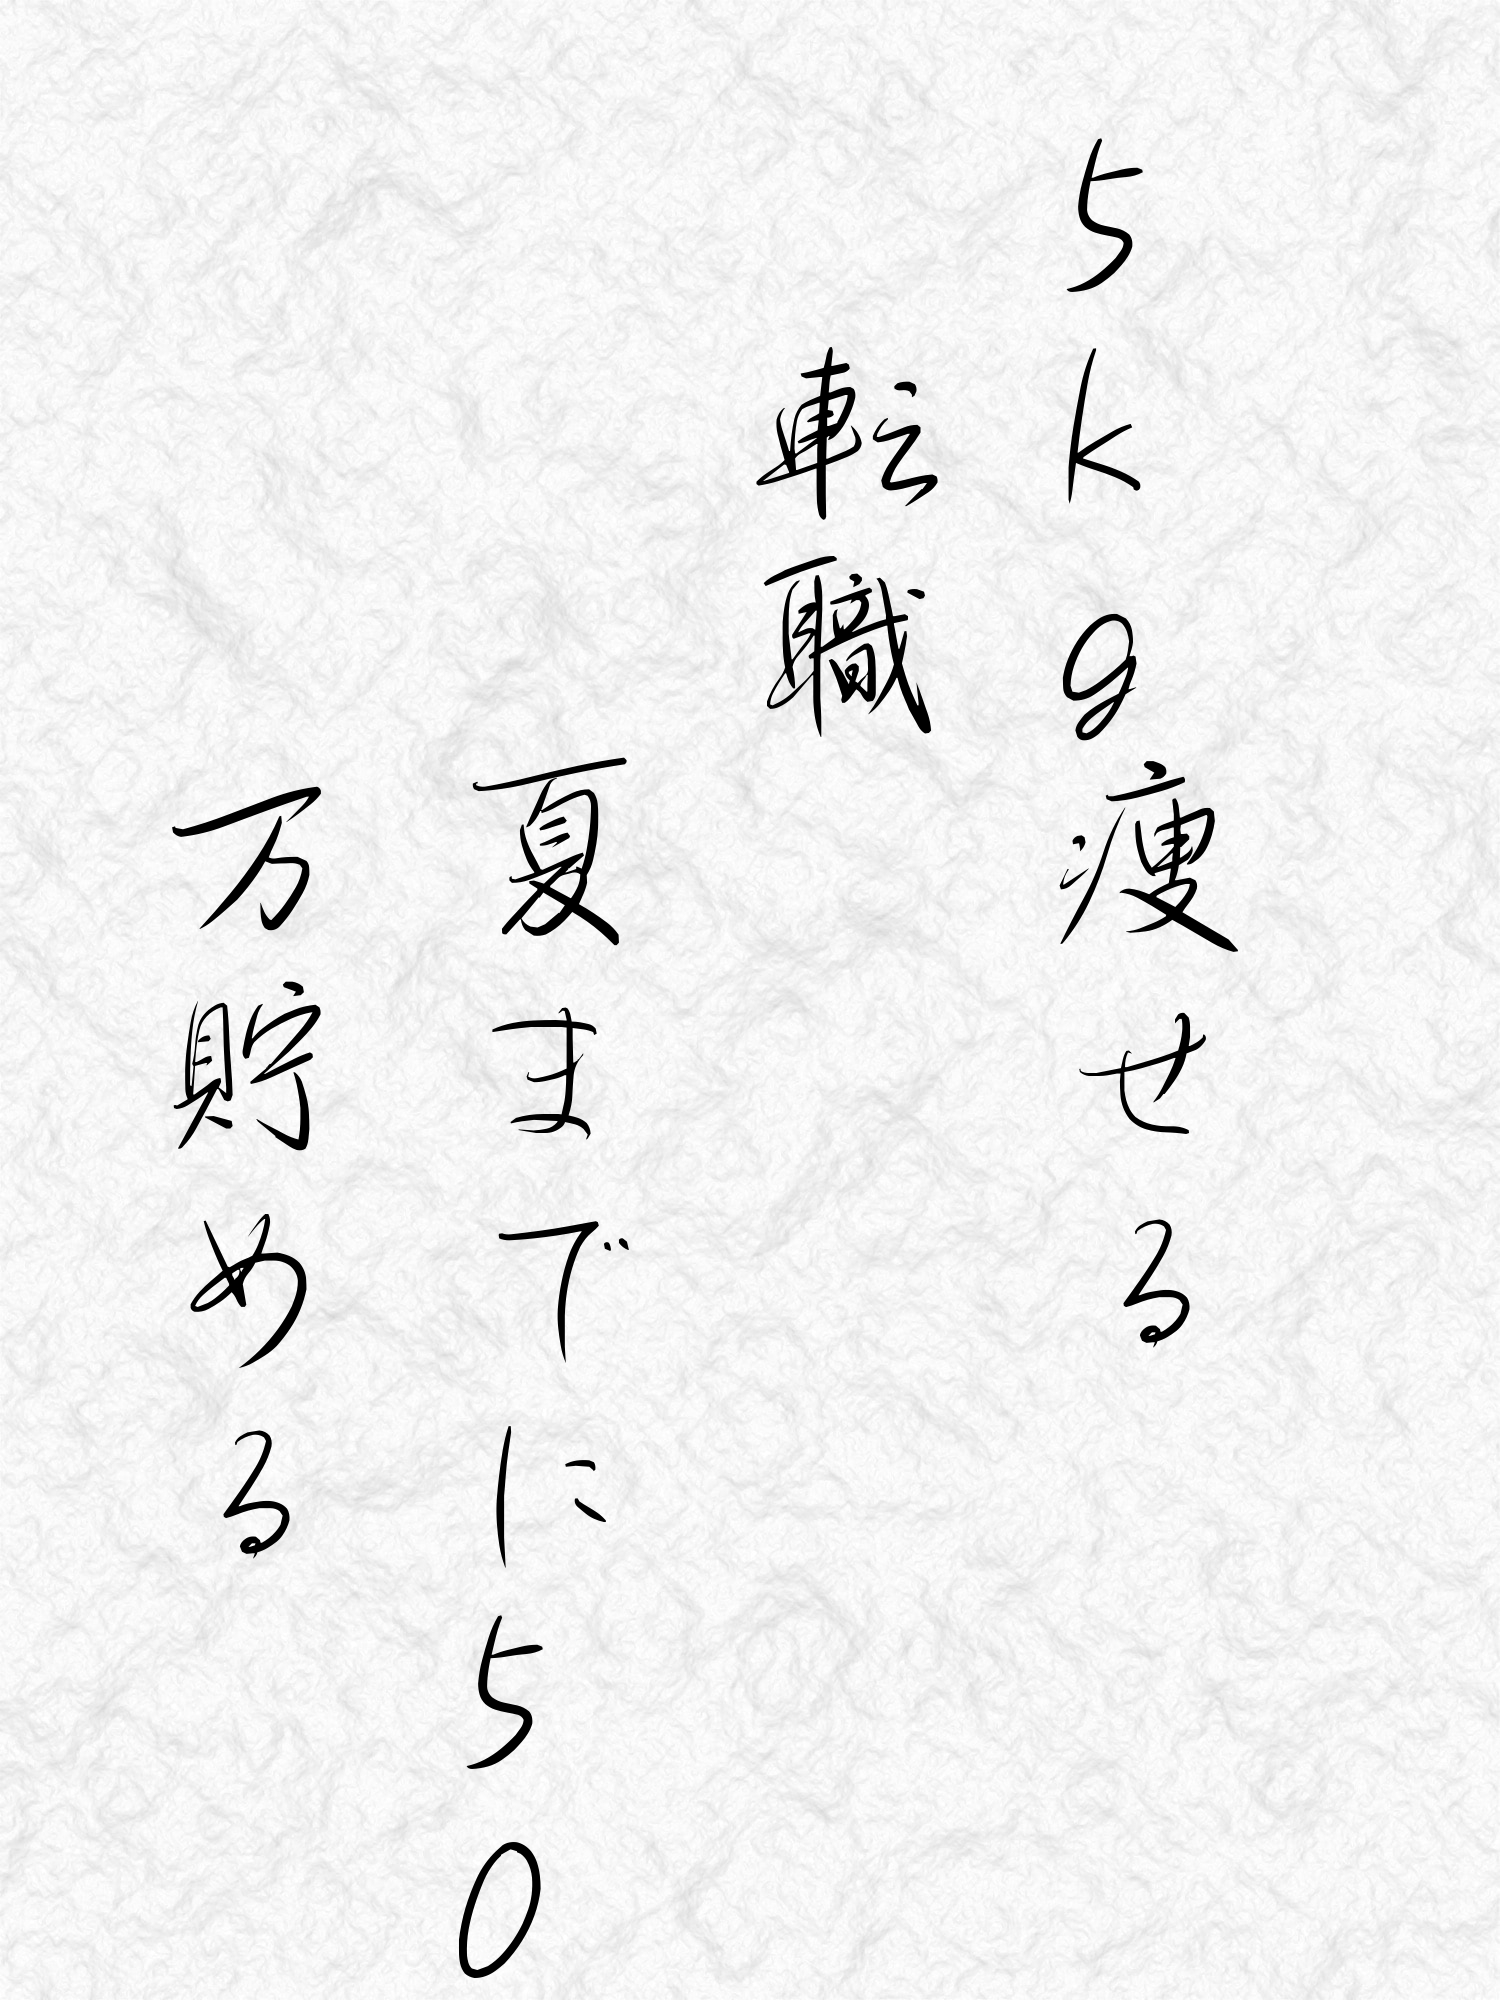 5kg痩せる
転職
夏までに50
万貯める